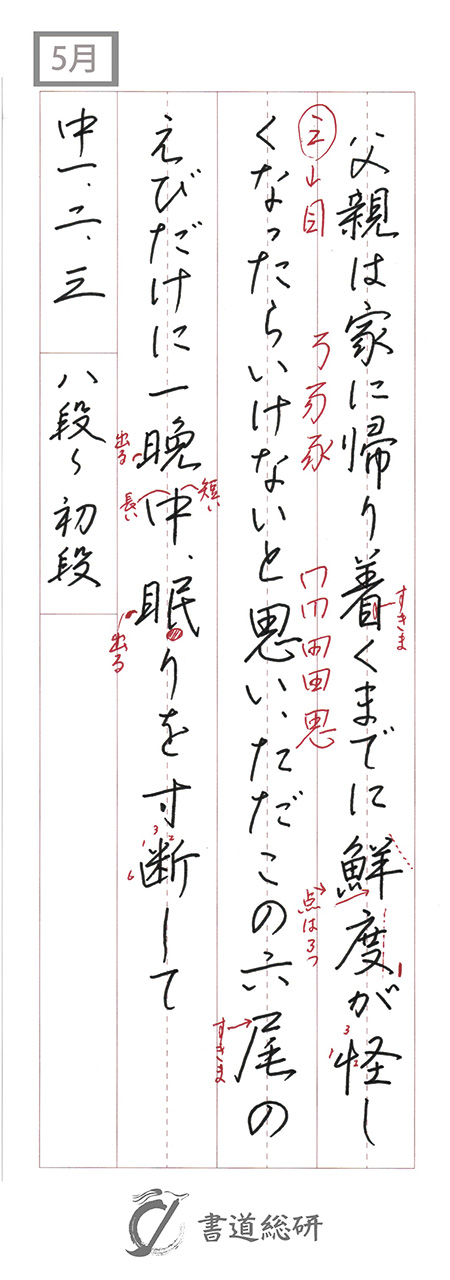 5月
父親は家に帰り着くまでに鮮度が怪し
くなったらいけないと思い、ただこの六尾の
えびだけに一晩中、眠りを寸断して
中一、二、三
八段〜初段
すきま
点は3つ
すきま
出る
長い
短い
出る
書道総研